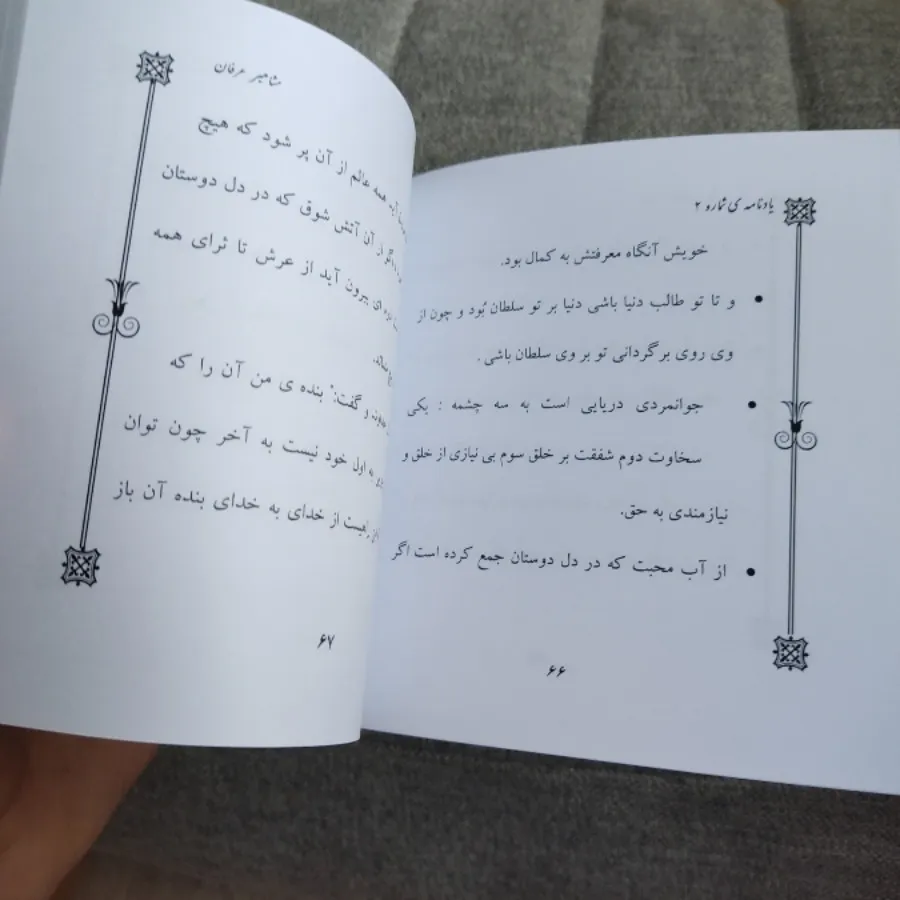 یادنامه ی شماره ۲
خویش آنگاه معرفتش به کمال بود.
• و تا تو طالب دنیا باشی دنیا بر تو سلطان بُود و چون از
وی روی برگردانی تو بر وی سلطان باشی.
• جوانمردی دریایی است به سه چشمه : یکی
سخاوت دوم شفقت بر خلق سوم بی نیازی از خلق و
نیازمندی به حق.
• از آب محبت که در دل دوستان جمع کرده است اگر
۶۶
مشاهیر عرفان
آید همه عالم از آن پر شود که هیچ
از آن آتش شوق که در دل دوستان
ای بیرون آید از عرش تا ثرای همه
و گفت:" بنده ی من آن را که
به اول خود نیست به آخر چون توان
از خدای به خدای بنده آن باز
۶۷